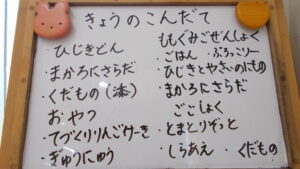 きょうのこんだて
・ひじきどん
・まかろにさらだ
・くだもの
おやつ
・てづくりりんごけーき
・ぎゅうにゅう
ももぐみごぜんしょく
・ごはん ・ぶろっこりー
・ひじきとやさいのにもの
・まかろにさらだ
ごごしょく
・とまとりぞっと
・しらあえ ・くだもの